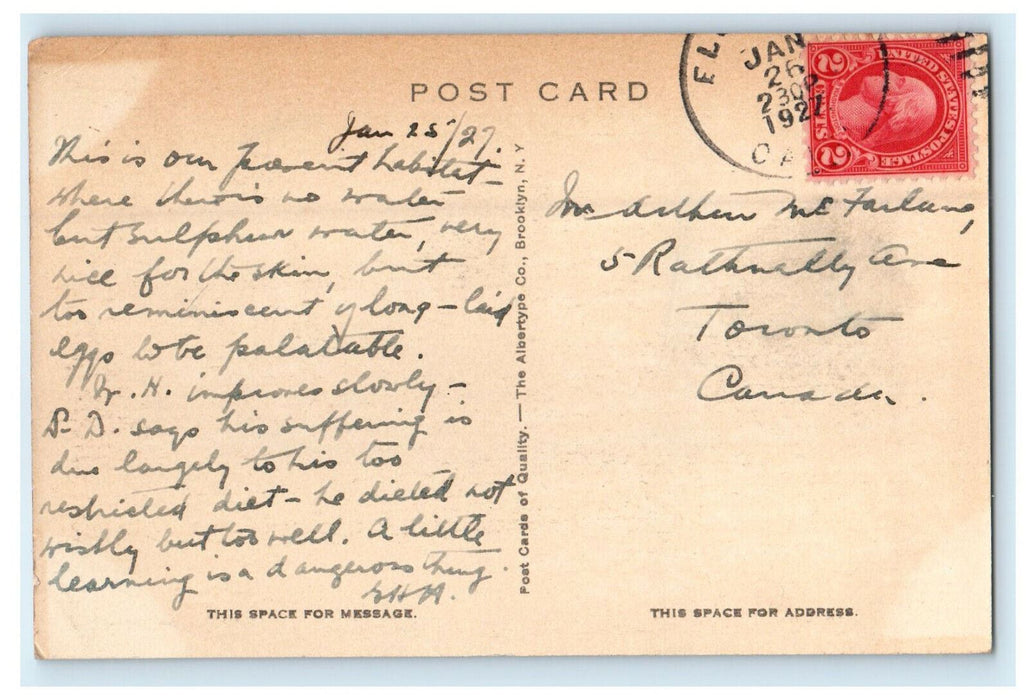 POST CARD
Jan 25/27.
This is our present habitat -
where there is no water
but sulphur water, very
nice for the skin, but
too reminiscent of long-laid
eggs to be palatable.
W. H. improves slowly -
D. says his suffering is
due largely to his too
restricted diet - he dieted not
wisely but too well. A little
learning is a dangerous thing.
THIS SPACE FOR MESSAGE.
Post Cards of Quality. — The Albertype Co., Brooklyn, N. Y
JAN
26
230P
1927
CAL
UNITED STATES POSTAGE
2 CENTS 2
Arthur McFarlane,
5 Rathnally Ave
Toronto
Canada.
THIS SPACE FOR ADDRESS.